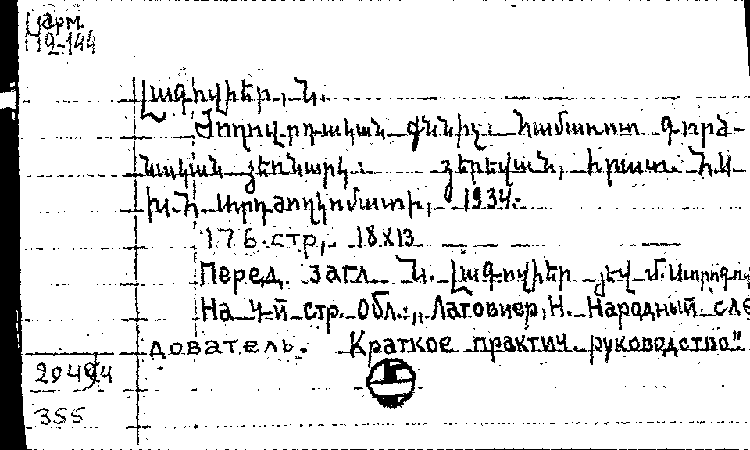 арм.
12-144
Լագովիեր, Ն.
Ժողովրդական քննիչ: Համառոտ գործ-
նական ձեռնարկ: Յերեվան, հրատ. Հ.Ս
Խ.Հ. Արդժողկոմատի, 1934.
176 стр, 18X13
Перед загл. Ն. Լագովիեր յեվ Մ.
На 4-й стр. обл.: „Лаговиер, Н. Народный сле
дователь. Краткое практич. руководство"
355